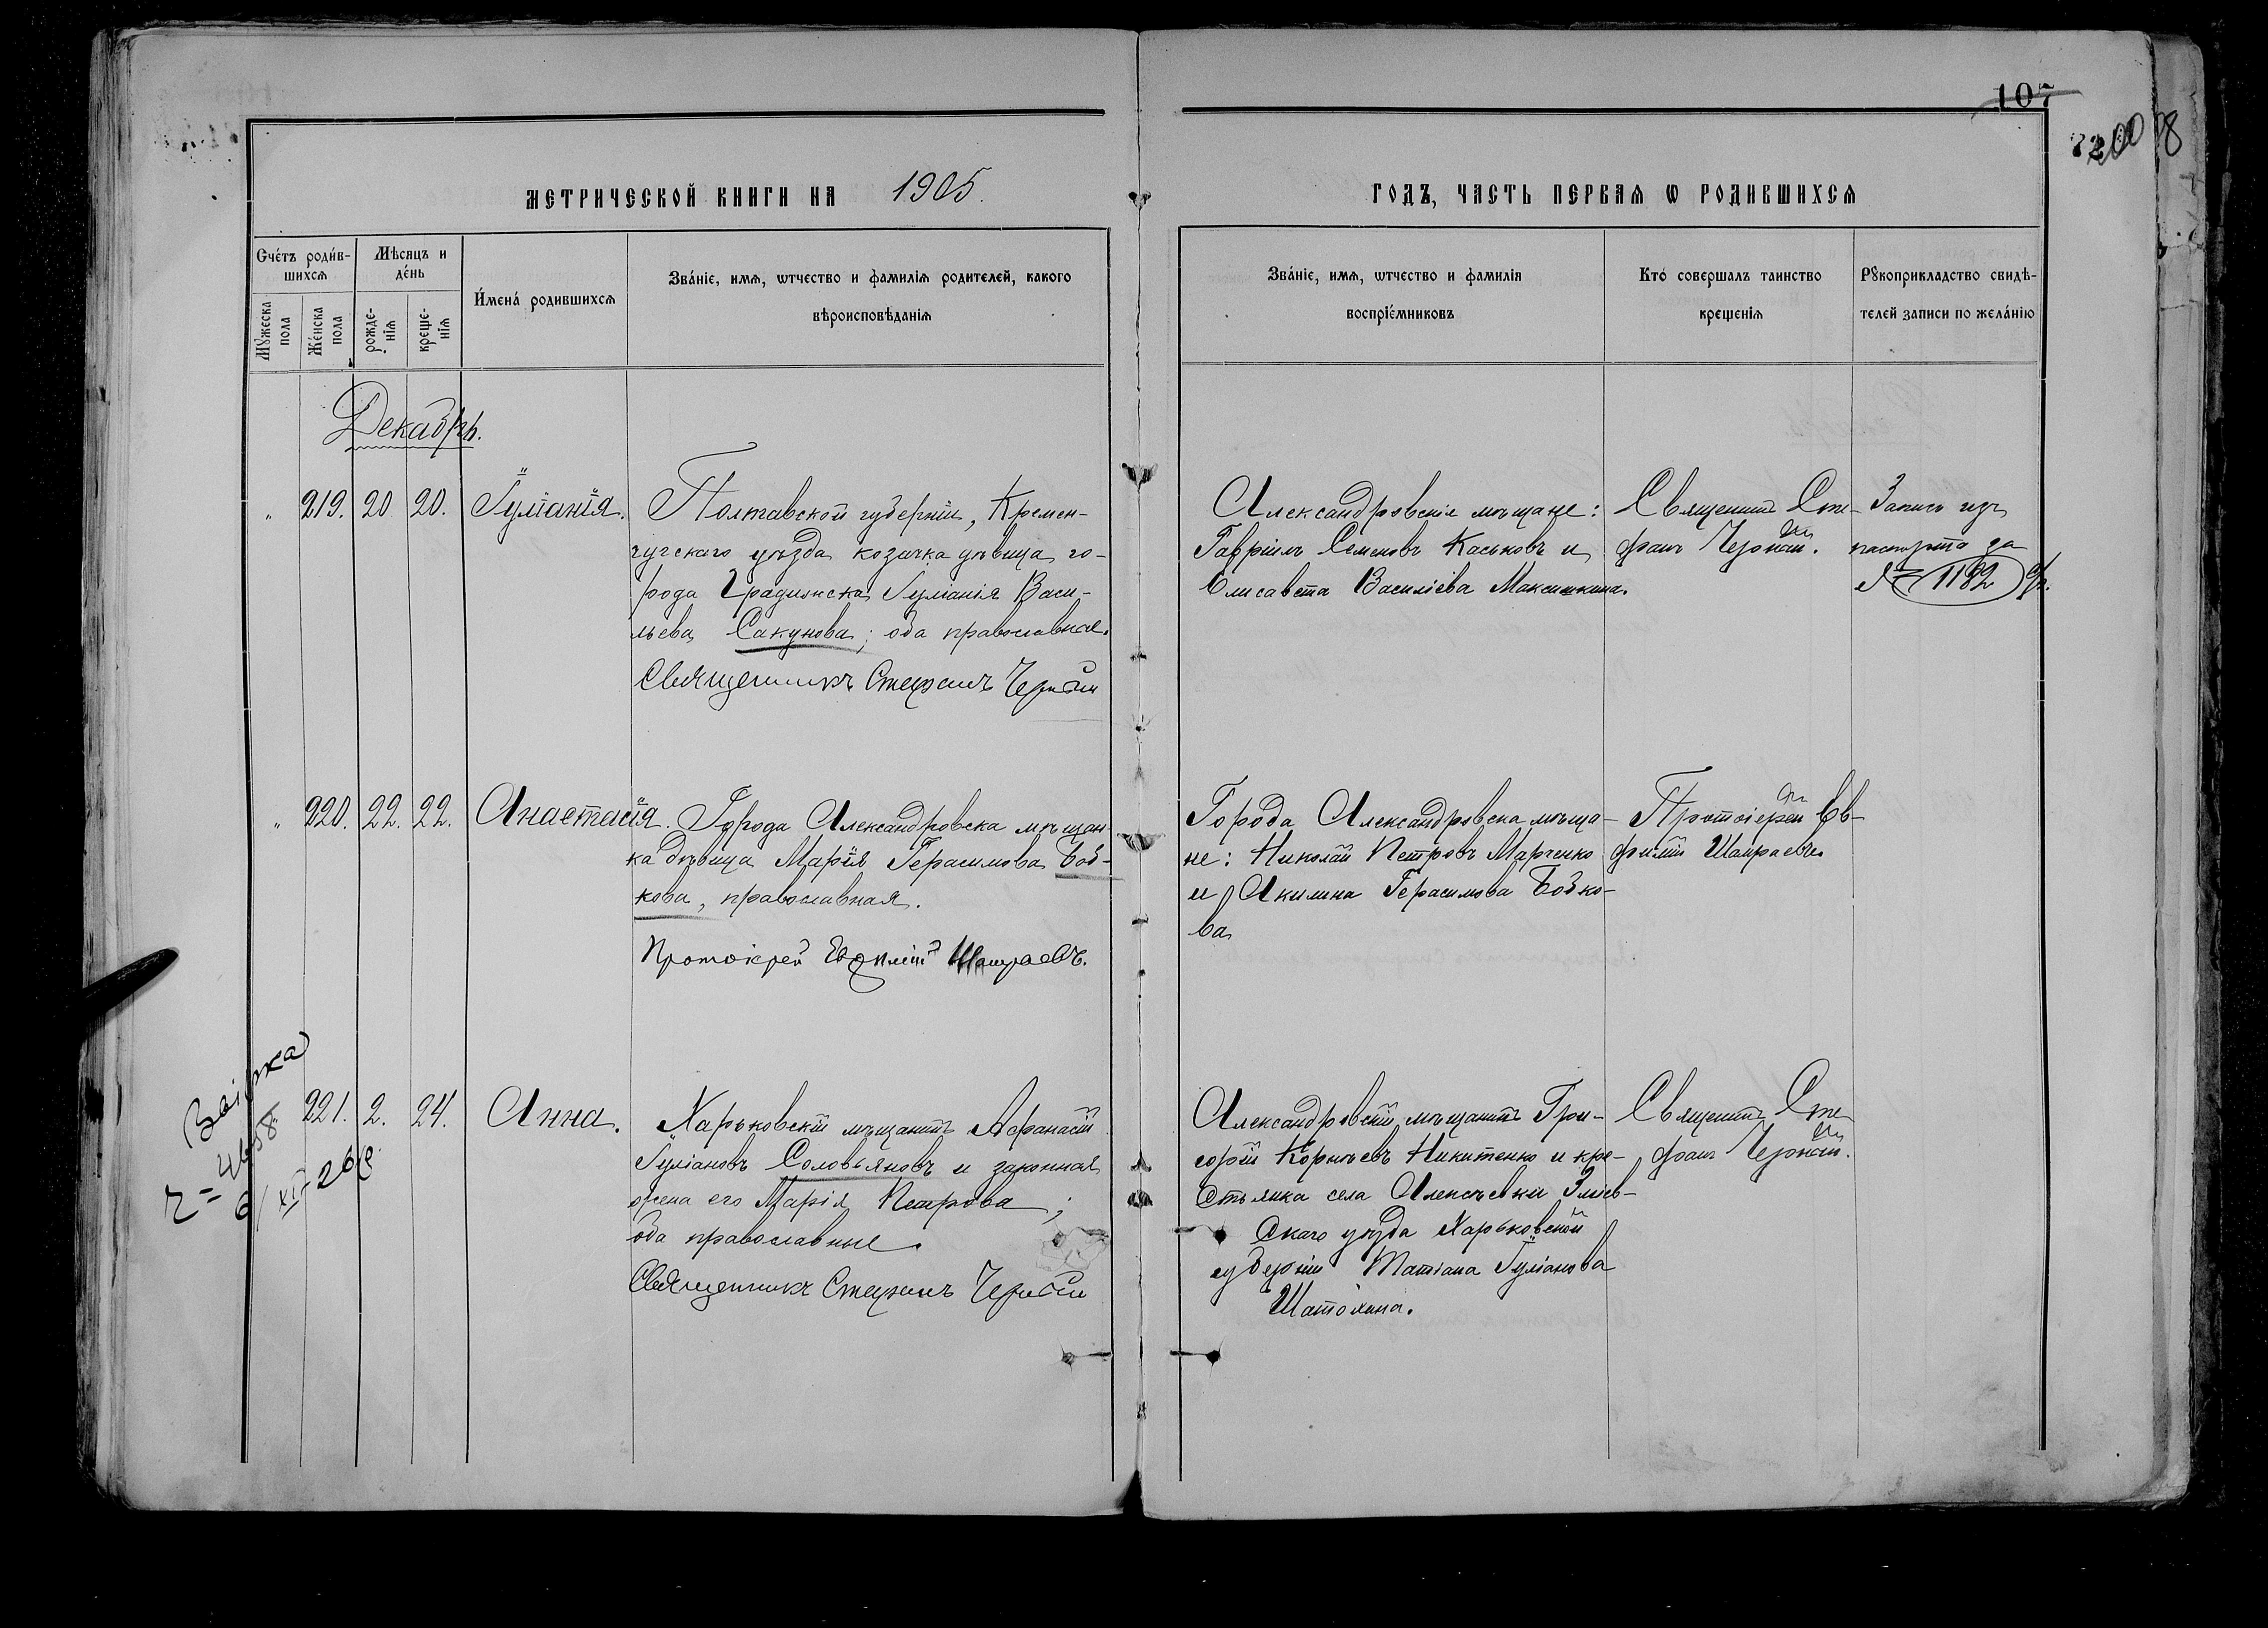 107
МЕТРИЧЕСКОЙ КНИГИ НА 1905.
ГОДЪ, ЧАСТЬ ПЕРВАЯ Ѡ РОДИВШИХСЯ
Сче́тъ роди́в-
шихсѧ
Мꙋжеска
пола
Же́нска
пола
Мѣсяцъ и
де́нь
рожде-
нїѧ
креще-
нїѧ
И́мена́ родившихсѧ
Зва́нїе, имѧ, ѡтчество и фамилїѧ родителей, какого
вѣроисповѣданїѧ
Зва́нїе, имѧ, ѡтчество и фамилїѧ
воспрїе́мниковъ
Кто́ совершалъ таинство
крещенїѧ
Рꙋкоприкладство свидѣ-
телей записи по жела́нїю
Декабрь.
" 219. 20 20. Іуліанія.
Полтавской губерніи, Кремен-
чугскаго уѣзда козачка дѣвица го-
рода Градижска Іуліанія Васи-
льева Сакунова; оба православная.
Священникъ Стефанъ Черный
Александровскіе мѣщане:
Гавріилъ Семеновъ Каськовъ и
Елисавета Василіева Максимкина.
Священникъ Сте-
фанъ Черный.
Запись изъ
паспорта за
№ 1182
" 220. 22. 22. Анастасія.
Города Александровска мѣщан-
ка дѣвица Марія Герасимова Боб-
кова, православная.
Протоіерей Евѳимій Шаираевъ.
Города Александровска мѣща-
не: Николай Петровъ Марченко
и Акилина Герасимова Бобко-
ва
Протоіерей Ев-
фимій Шаираевъ.
221. 2. 24. Анна.
Харьковскій мѣщанинъ Афанасій
Іуліановъ Соловьяновъ и законная
жена его Марія Петрова;
оба православные.
Священникъ Стефанъ Черный
Александровскій мѣщанинъ Гри-
горій Корнѣевъ Никитенко и кре-
стьянка села Алексѣевки Зміев-
скаго уѣзда Харьковской
губерніи Татіана Іуліанова
Шатохина.
Священникъ Сте-
фанъ Черный.